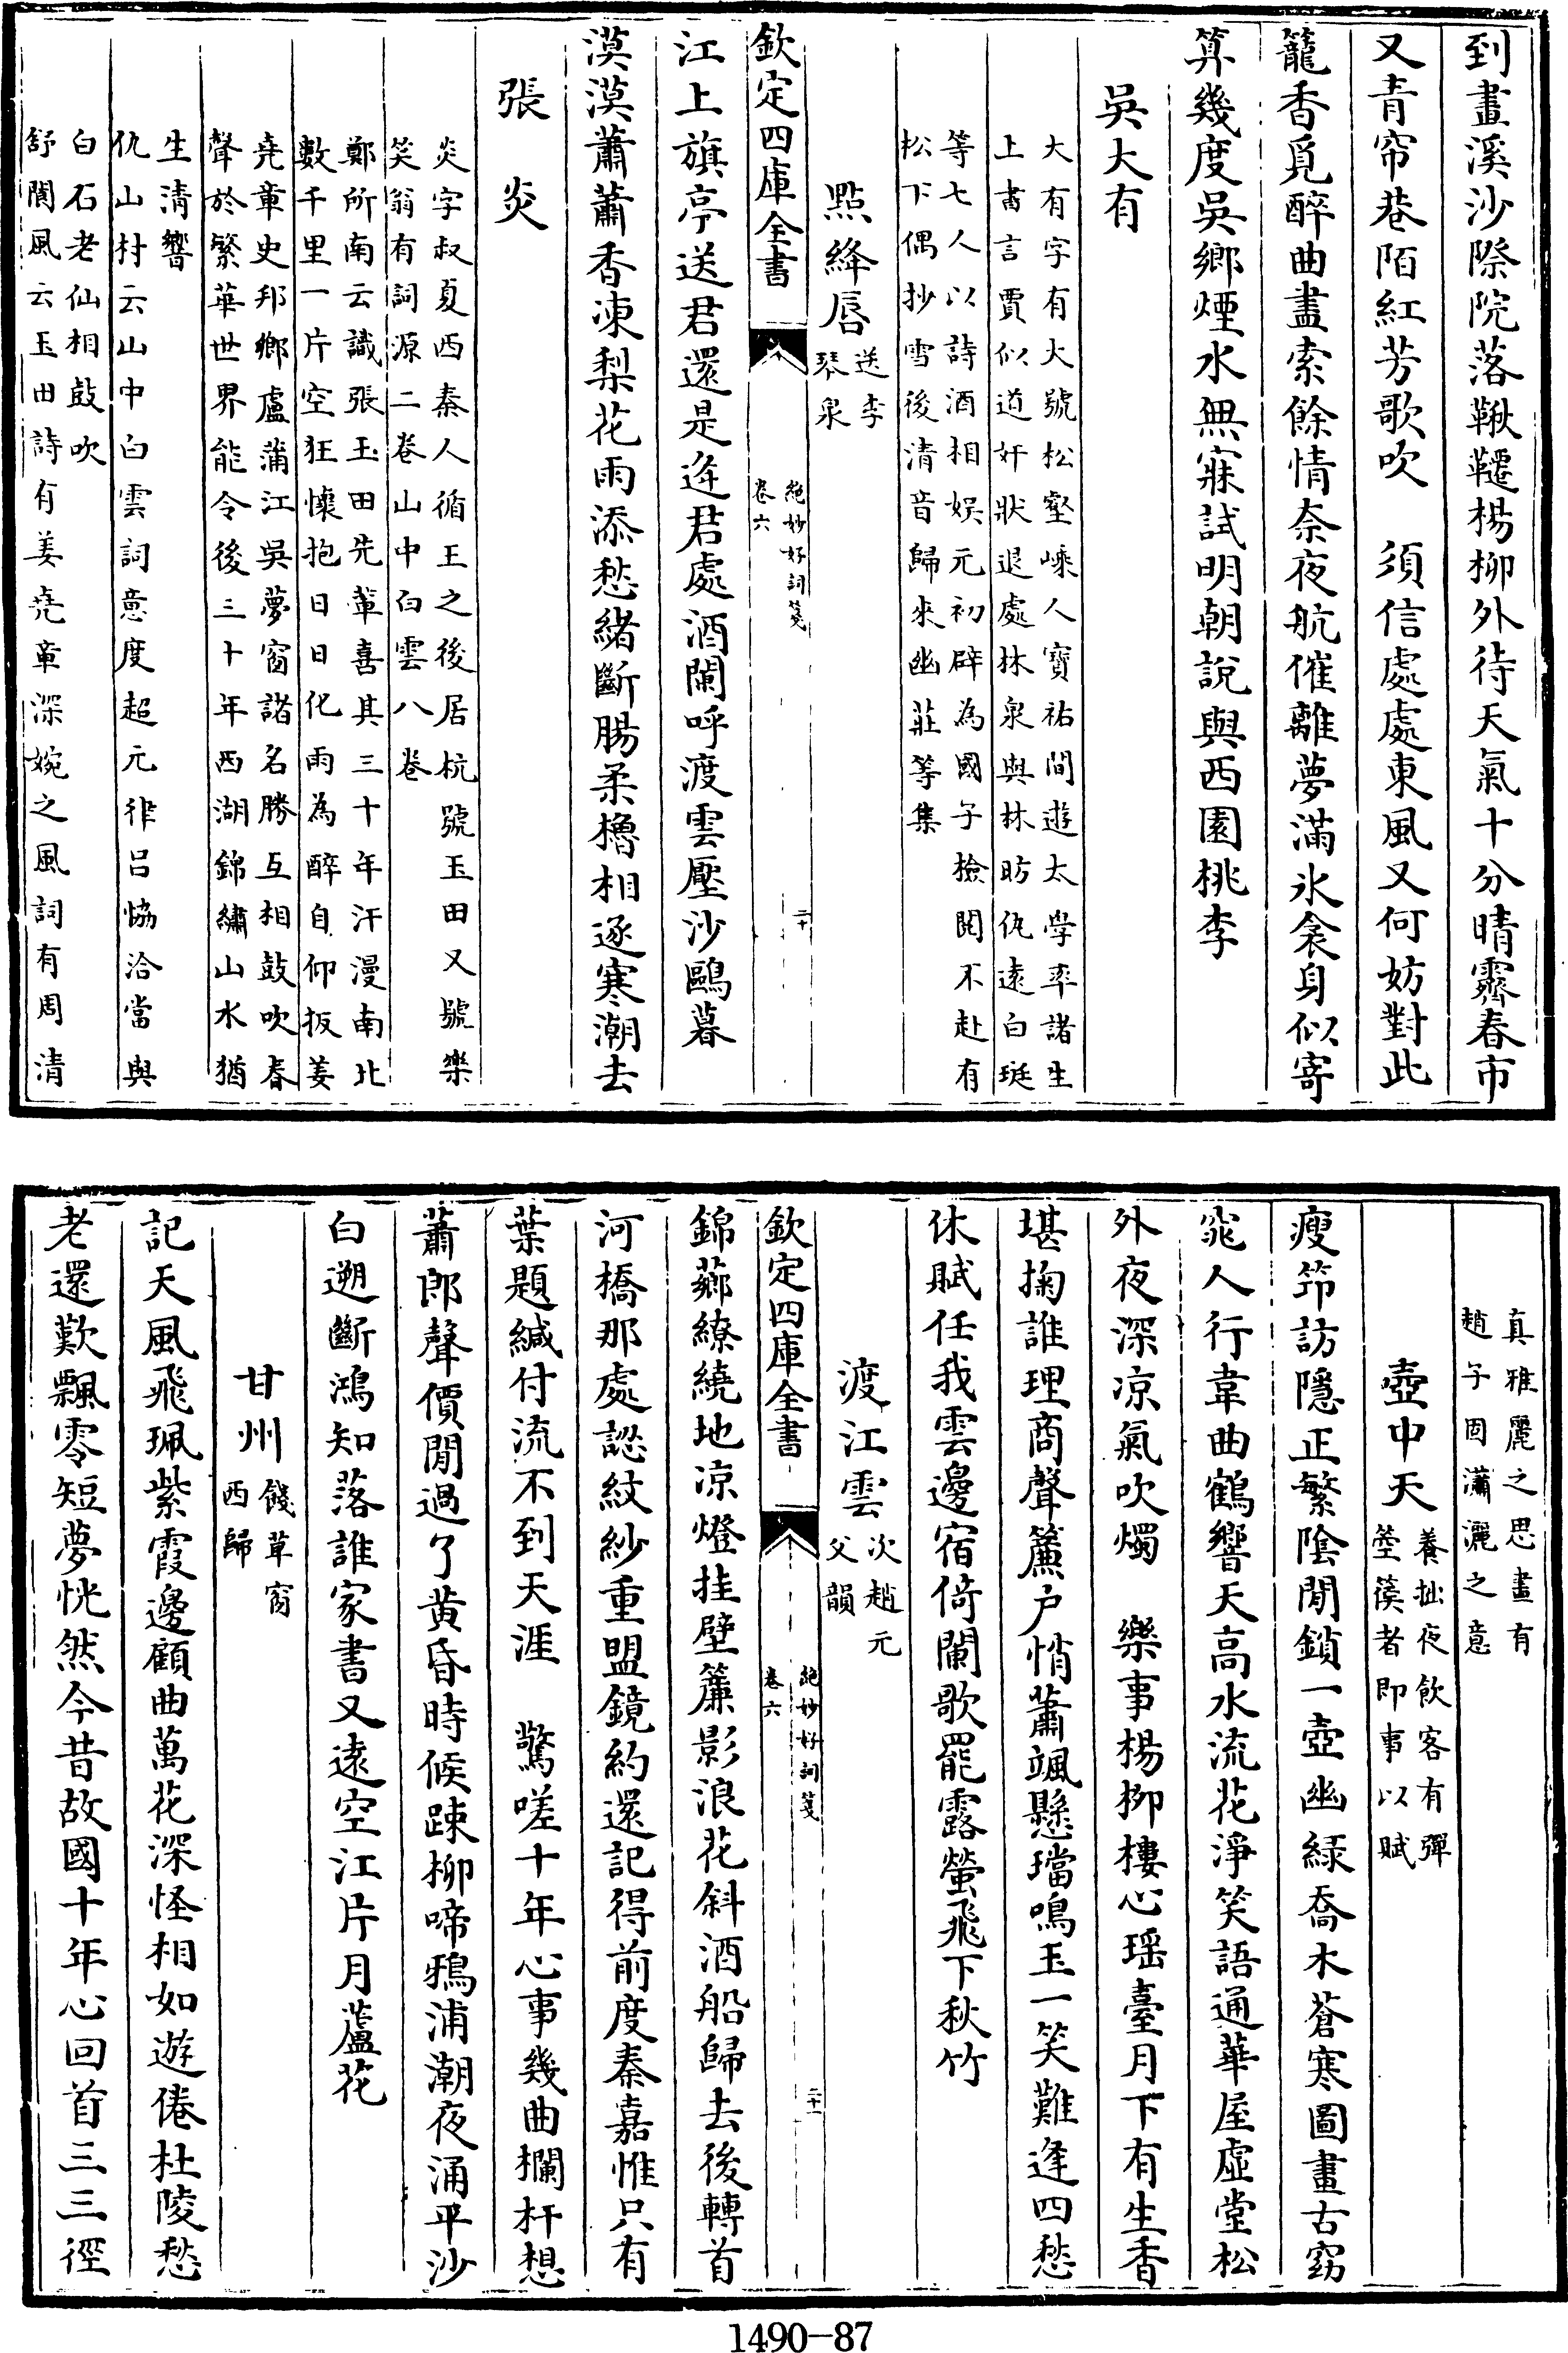 到畫溪沙際院落鞦韆楊柳外待天氣十分晴霽春市
又青帘巷陌紅芳歌吹　須信處處東風又何妨對此
籠香覓醉曲盡索餘情奈夜航催離夢滿氷衾身似寄
算幾度吳鄉煙水無寐試明朝說與西園桃李
吳大有
大有字有大號松壑嵊人寶祐間遊太學率諸生
上書言賈似道奸狀退處林泉與林昉仇遠白珽
等七人以詩酒相娱元初辟為國子檢閱不赴有
松下偶抄雪後清音歸來幽莊等集
點絳唇
送李
琴泉
欽定四庫全書
絶妙好詞箋
卷六
二十
江上旗亭送君還是逢君處酒闌呼渡雲壓沙鷗暮
漠漠蕭蕭香凍梨花雨添愁緒斷腸柔櫓相逐寒潮去
張炎
炎字叔夏西秦人循王之後居杭號玉田又號樂
笑翁有詞源二卷山中白雲八卷
鄭所南云識張玉田先輩喜其三十年汗漫南北
數千里一片空狂懷抱日日化雨為醉自仰扳姜
堯章史邦卿盧蒲江吳夢窗諸名勝互相鼓吹春
聲於繁華世界能令後三十年西湖錦繡山水猶
生清響
仇山村云山中白雲詞意度超元律吕恊洽當與
白石老仙相鼓吹
舒閬風云玉田詩有姜堯章深婉之風詞有周清
真雅麗之思畫有
趙子固瀟灑之意
壺中天
養拙夜飲客有彈
箜篌者即事以賦
瘦笻訪隱正繁陰閒鎖一壺幽緑喬木蒼寒圖畫古窈
窕人行韋曲鶴響天高水流花淨笑語通華屋虛堂松
外夜深凉氣吹燭　樂事楊栁樓心瑶臺月下有生香
堪掬誰理商聲簾户悄蕭颯懸璫鳴玉一笑難逢四愁
休賦任我雲邊宿倚闌歌罷露螢飛下秋竹
渡江雲
次趙元
父韻
欽定四庫全書
絶妙好詞箋
卷六
二十一
錦薌繚繞地凉燈挂壁簾影浪花斜酒船歸去後轉首
河橋那處認紋紗重盟鏡約還記得前度秦嘉惟只有
葉題緘付流不到天涯　驚嗟十年心事幾曲欄杆想
蕭郎聲價閒過了黄昏時候踈柳啼鴉浦潮夜涌平沙
白遡斷鴻知落誰家書又遠空江片月蘆花
甘州
餞草窗
西歸
記天風飛珮紫霞邊顧曲萬花深怪相如遊倦杜陵愁
老還歎飄零短夢恍然今昔故國十年心回首三三徑
1490-87